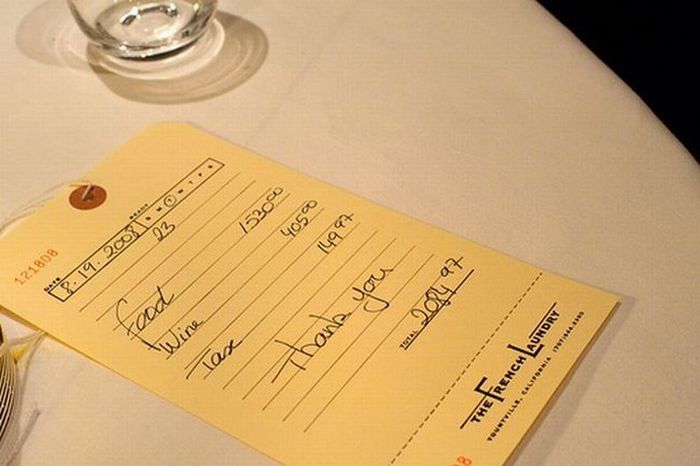 121808
READY
DATE 8.19.2008 S M T W T F S
23
Food 1530 00
Wine 405 00
Tax 149 97
Thank you
TOTAL 2084 97
THE FRENCH LAUNDRY
YOUNTVILLE, CALIFORNIA (707) 944 2380
8